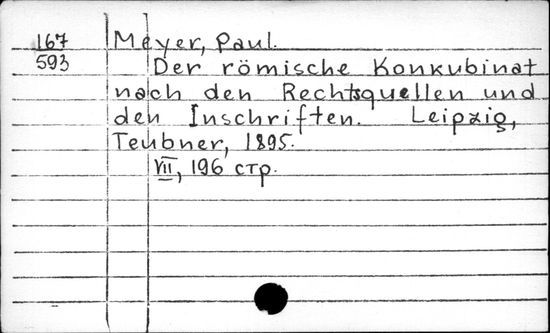 167 Meyer, Paul.
593 Der römische Konkubinat
nach den Rechtsquellen und
den Inschriften. Leipzig,
Teubner, 1895.
VII, 196 стр.